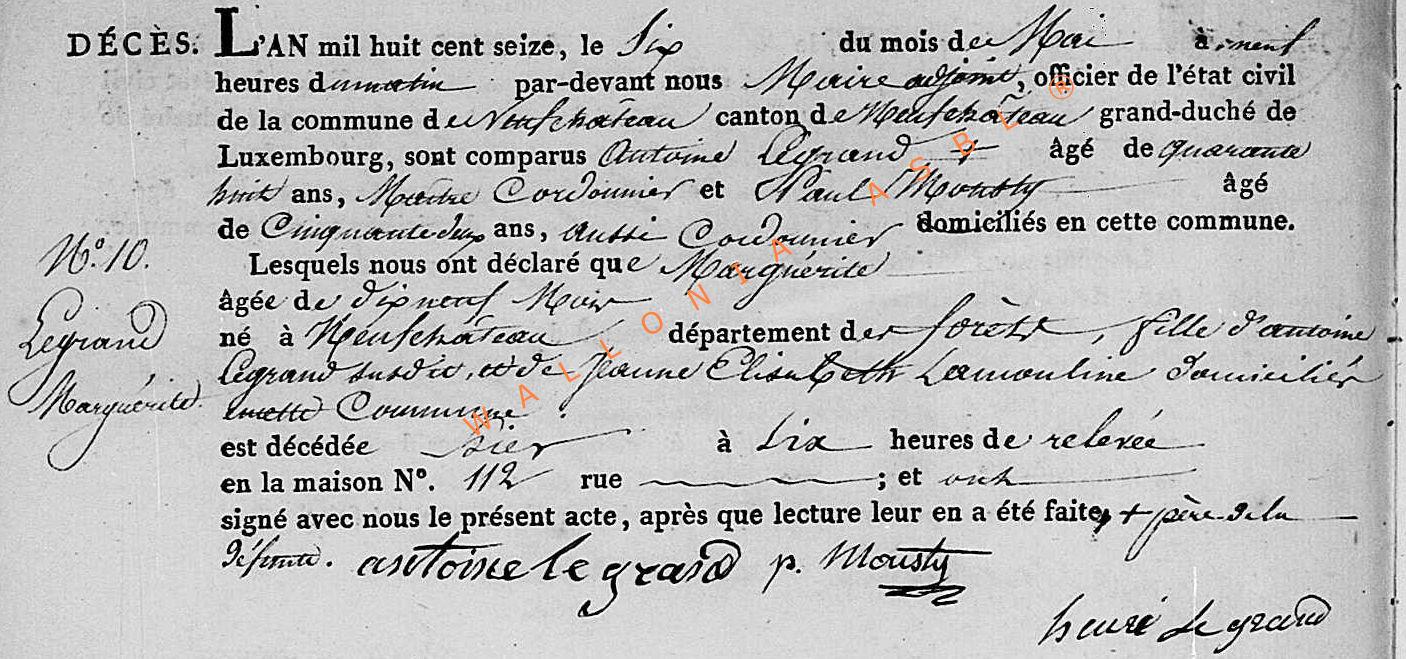 DÉCÈS. L'AN mil huit cent seize, le Six du mois de Mai à neuf
heures du matin par-devant nous Maire adjoint, officier de l'état civil
de la commune de Neufchâteau canton de Neufchâteau grand-duché de
Luxembourg, sont comparus Antoine Legrand + âgé de quarante
huit ans, Maitre Cordonnier et Paul Mousty âgé
de Cinquante deux ans, aussi Cordonnier domiciliés en cette commune.
N.º 10.
Lesquels nous ont déclaré que Marguérite
âgée de dix neuf Mois
Legrand
Marguérite.
né à Neufchâteau département des forêts, fille d'antoine
Legrand susdit, et de Jeanne Elisabeth Lamouline domiciliés
en cette Commune.
est décédée hier à Six heures de relevée
en la maison Nº. 112 rue ; et ont
signé avec nous le présent acte, après que lecture leur en a été faite, + père de la
défunte. antoine le grand p. Mousty
henri Le grand
WALLONIA ASBL ®